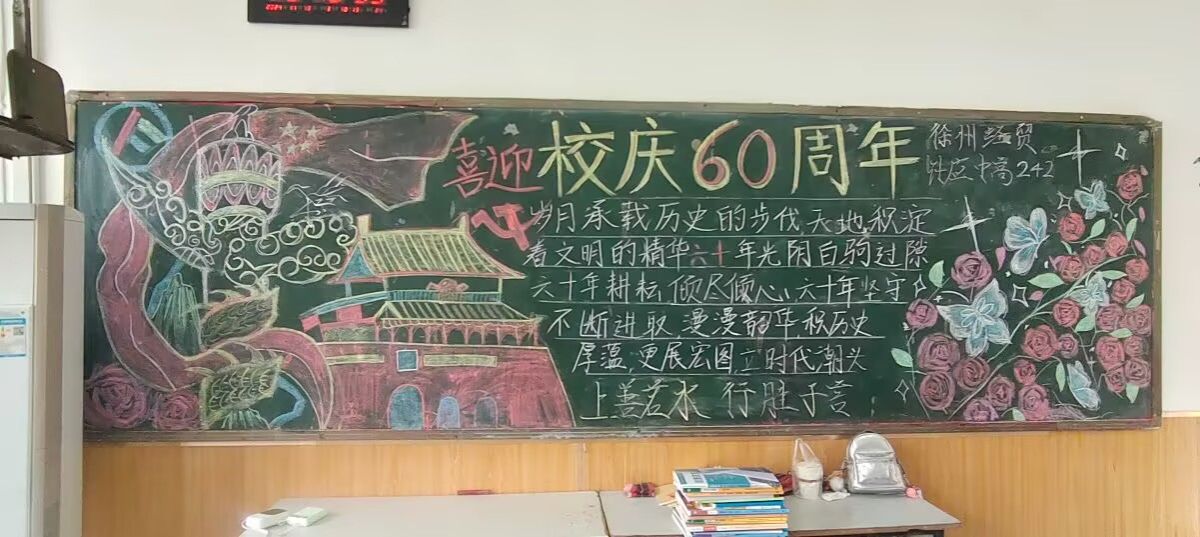 喜迎校庆60周年
徐州经贸
供应中高242
岁月承载历史的步伐天地积淀
着文明的精华六十年光阴白驹过隙
六十年耕耘,倾尽倾心,六十年坚守
不断进取,漫漫韶华积历史
厚蕴,更展宏图立时代潮头
上善若水 行胜于言